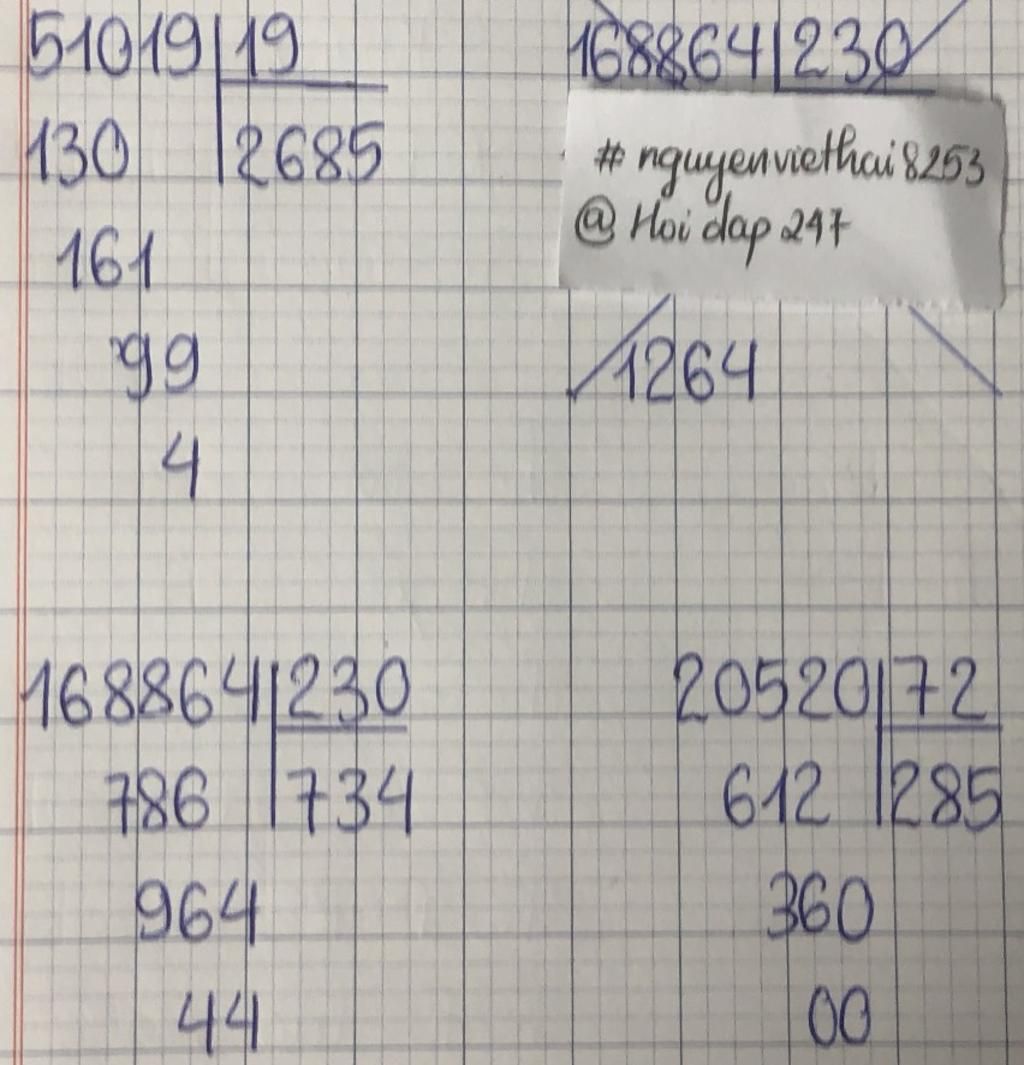 51019 19
130 2685
161
99
4
168864 230
# nguyenviethai8253
@ Hoidap247
1264
168864 230
786 734
964
44
20520 72
612 285
360
00